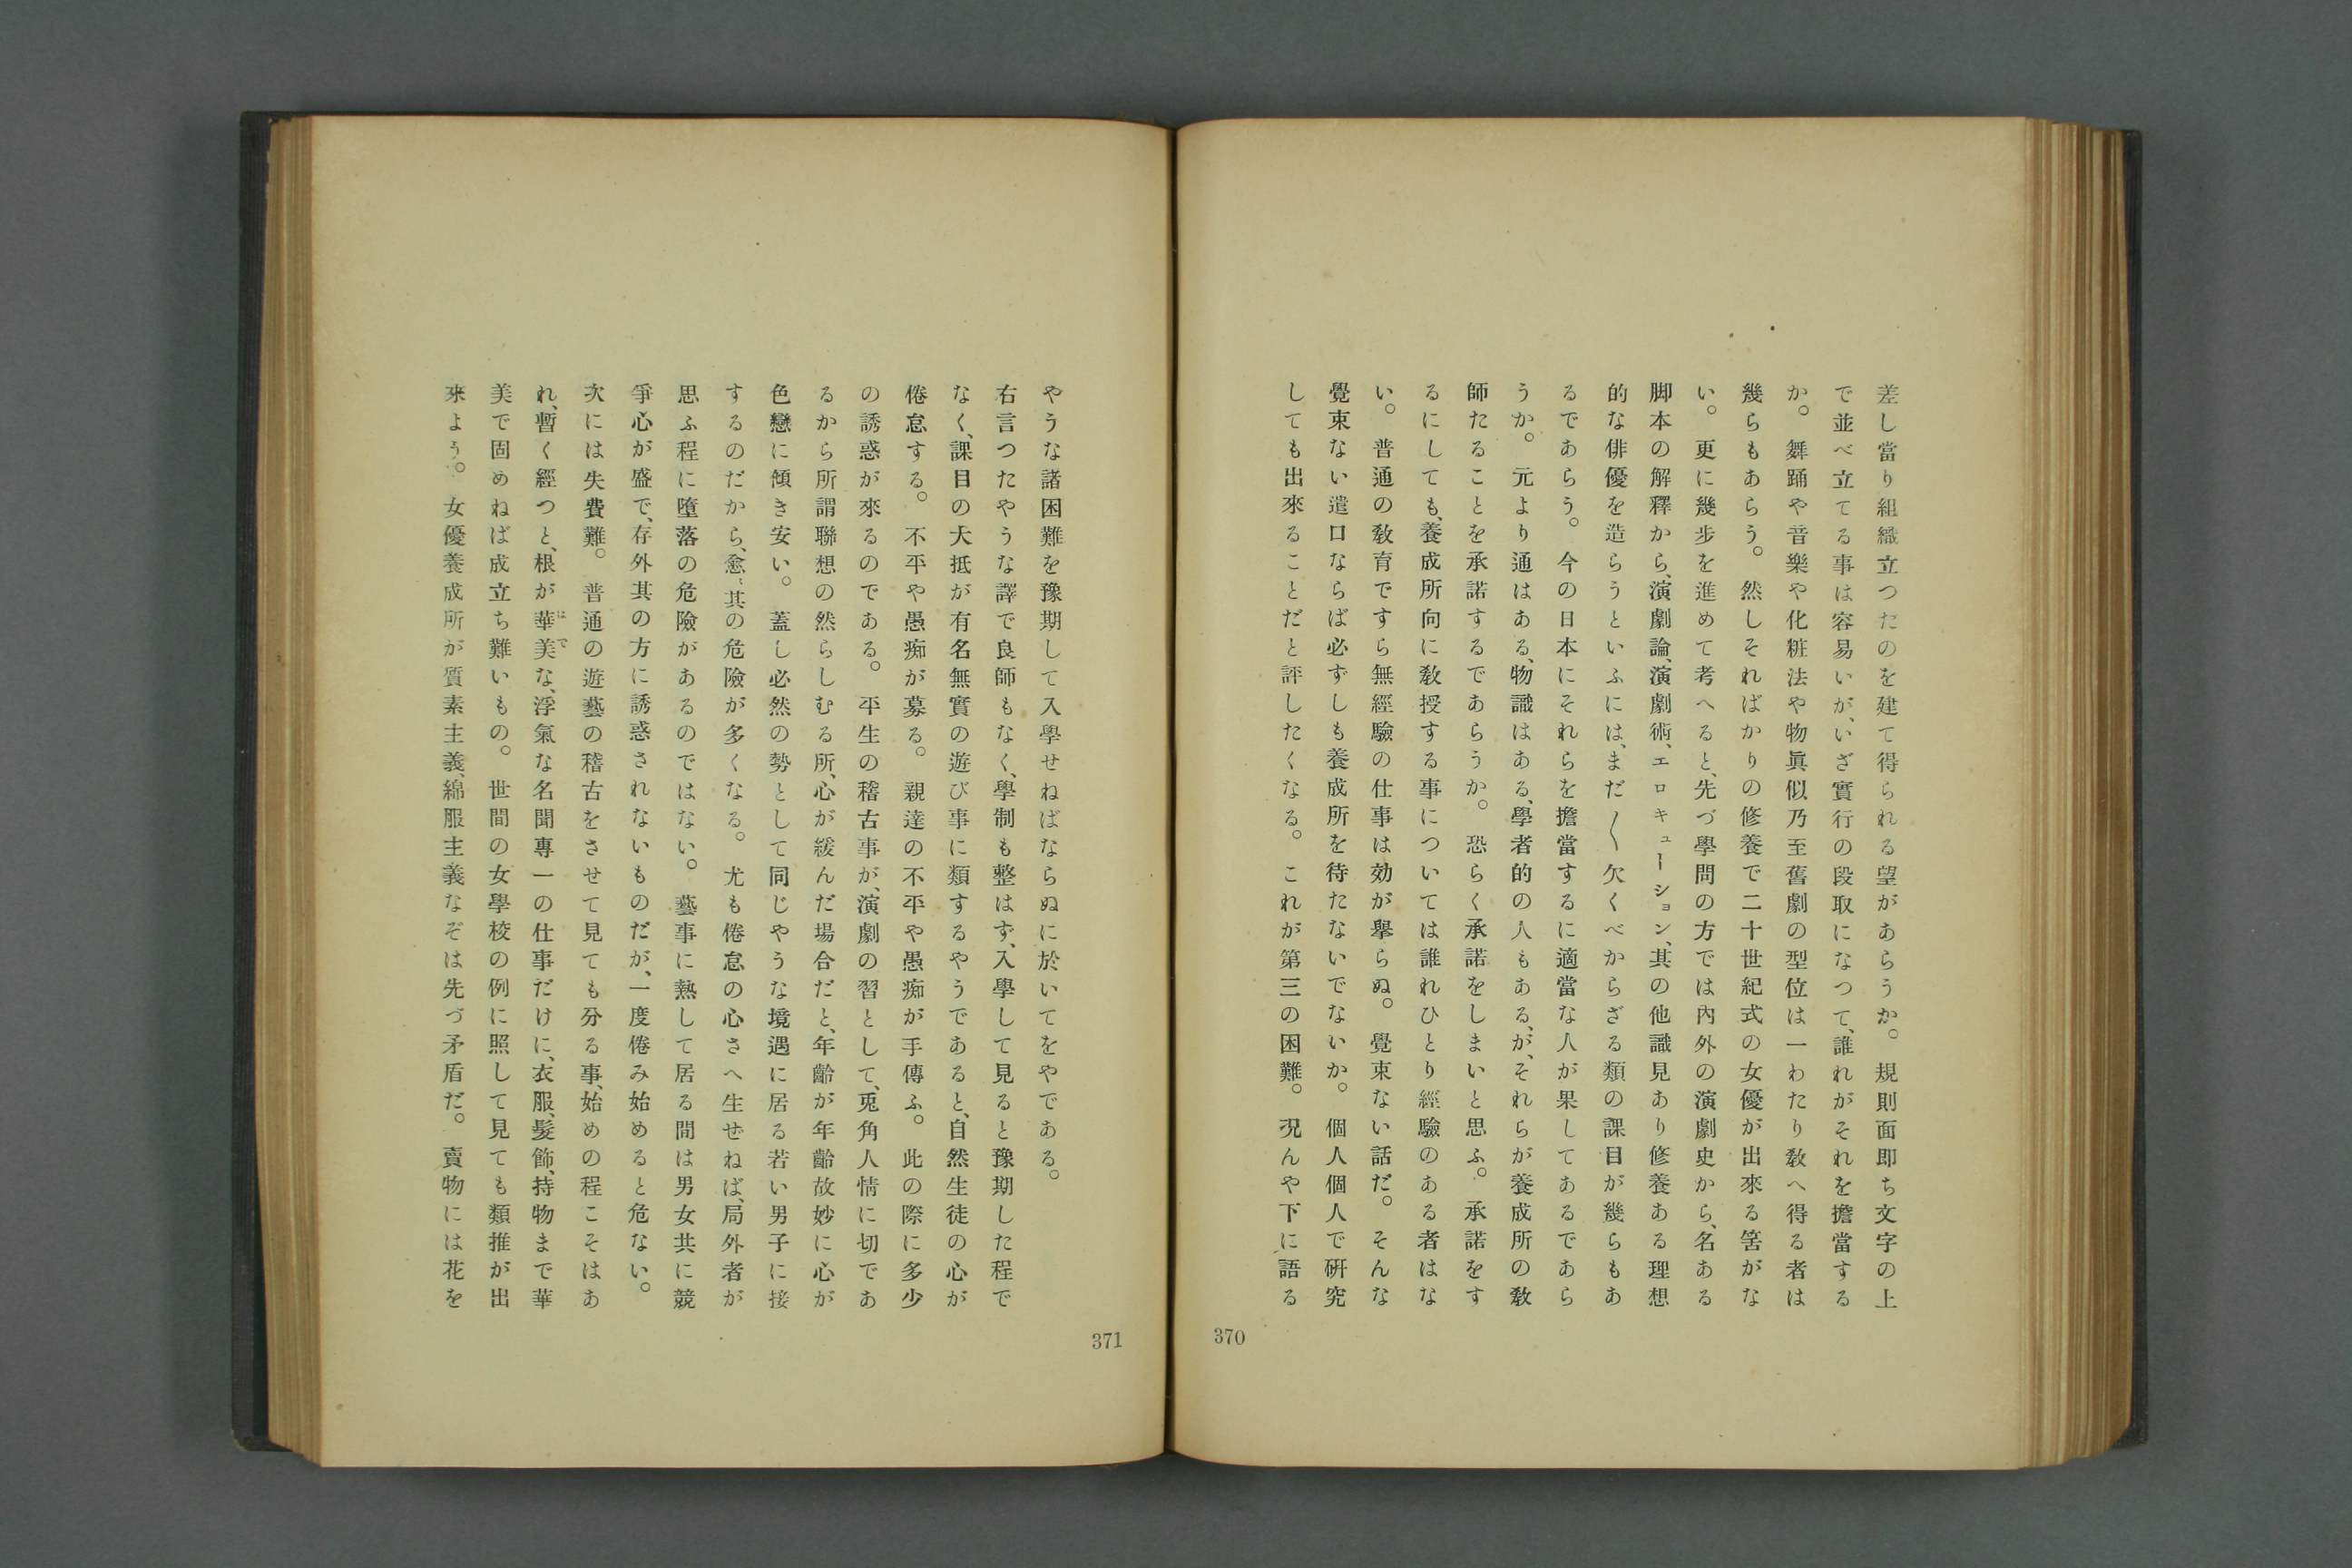 差し當り組織立つたのを建て得られる望があらうか。規則面即ち文字の上
で並べ立てる事は容易いが、いざ實行の段取になつて、誰れがそれを擔當する
か。舞踊や音樂や化粧法や物眞似乃至舊劇の型位は一わたり敎へ得る者は
幾らもあらう。然しそればかりの修養で二十世紀式の女優が出來る筈がな
い。更に幾步を進めて考へると、先づ學問の方では內外の演劇史から、名ある
脚本の解釋から、演劇論、演劇術、エロキューション、其の他識見あり修養ある理想
的な俳優を造らうといふには、まだ〳〵欠くべからざる類の課目が幾らもあ
るであらう。今の日本にそれらを擔當するに適當な人が果してあるであら
うか。元より通はある、物識はある、學者的の人もある、が、それらが養成所の敎
師たることを承諾するであらうか。恐らく承諾をしまいと思ふ。承諾をす
るにしても、養成所向に敎授する事については誰れひとり經驗のある者はな
い。普通の敎育ですら無經驗の仕事は効が擧らぬ。覺束ない話だ。そんな
覺束ない遣口ならば必ずしも養成所を待たないでないか。個人個人で硏究
しても出來ることだと評したくなる。これが第三の困難。況んや下に語る
370
やうな諸困難を豫期して入學せねばならぬに於いてをやである。
右言つたやうな譯で良師もなく、學制も整はず、入學して見ると豫期した程で
なく、課目の大抵が有名無實の遊び事に類するやうであると、自然生徒の心が
倦怠する。不平や愚痴が募る。親達の不平や愚痴が手傳ふ。此の際に多少
の誘惑が來るのである。平生の稽古事が、演劇の習として、兎角人情に切であ
るから所謂聯想の然らしむる所、心が緩んだ場合だと、年齡が年齡故妙に心が
色戀に傾き安い。蓋し必然の勢として同じやうな境遇に居る若い男子に接
するのだから、愈〻其の危險が多くなる。尤も倦怠の心さへ生せねば、局外者が
思ふ程に墮落の危險があるのではない。藝事に熱して居る間は男女共に競
爭心が盛で、存外其の方に誘惑されないものだが、一度倦み始めると危ない。
次には失費難。普通の遊藝の稽古をさせて見ても分る事、始めの程こそはあ
れ、暫く經つと、根が華美な、浮氣な名聞專一の仕事だけに、衣服、髮飾、持物まで華
美で固めねば成立ち難いもの。世間の女學校の例に照して見ても類推が出
來よう。女優養成所が質素主義、綿服主義なぞは先づ矛盾だ。賣物には花を
371